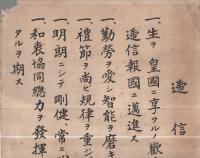 遞信
一、生ヲ皇國ニ享クルノ歡
遞信報國ニ邁進ス
一、勤勞ヲ愛シ智能ヲ磨キ
一、禮節ヲ尚ビ規律ヲ重ジ
一、明朗ニシテ剛健、常ニ
一、和衷協同總力ヲ發揮
タルヲ期ス